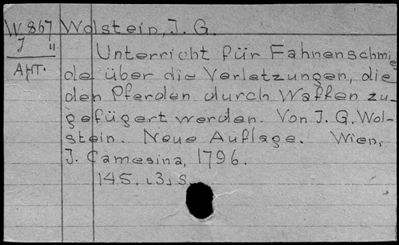 W 867 Wolstein, J. G.
J "
Apt. Unterricht für Fahnenschmie
de über die Verletzungen, die
den Pferden durch Waffen zu-
gefügert werden. Von J. G. Wol-
stein. Neue Auflage. Wien,
J. Camesina, 1796.
145, [3] S.